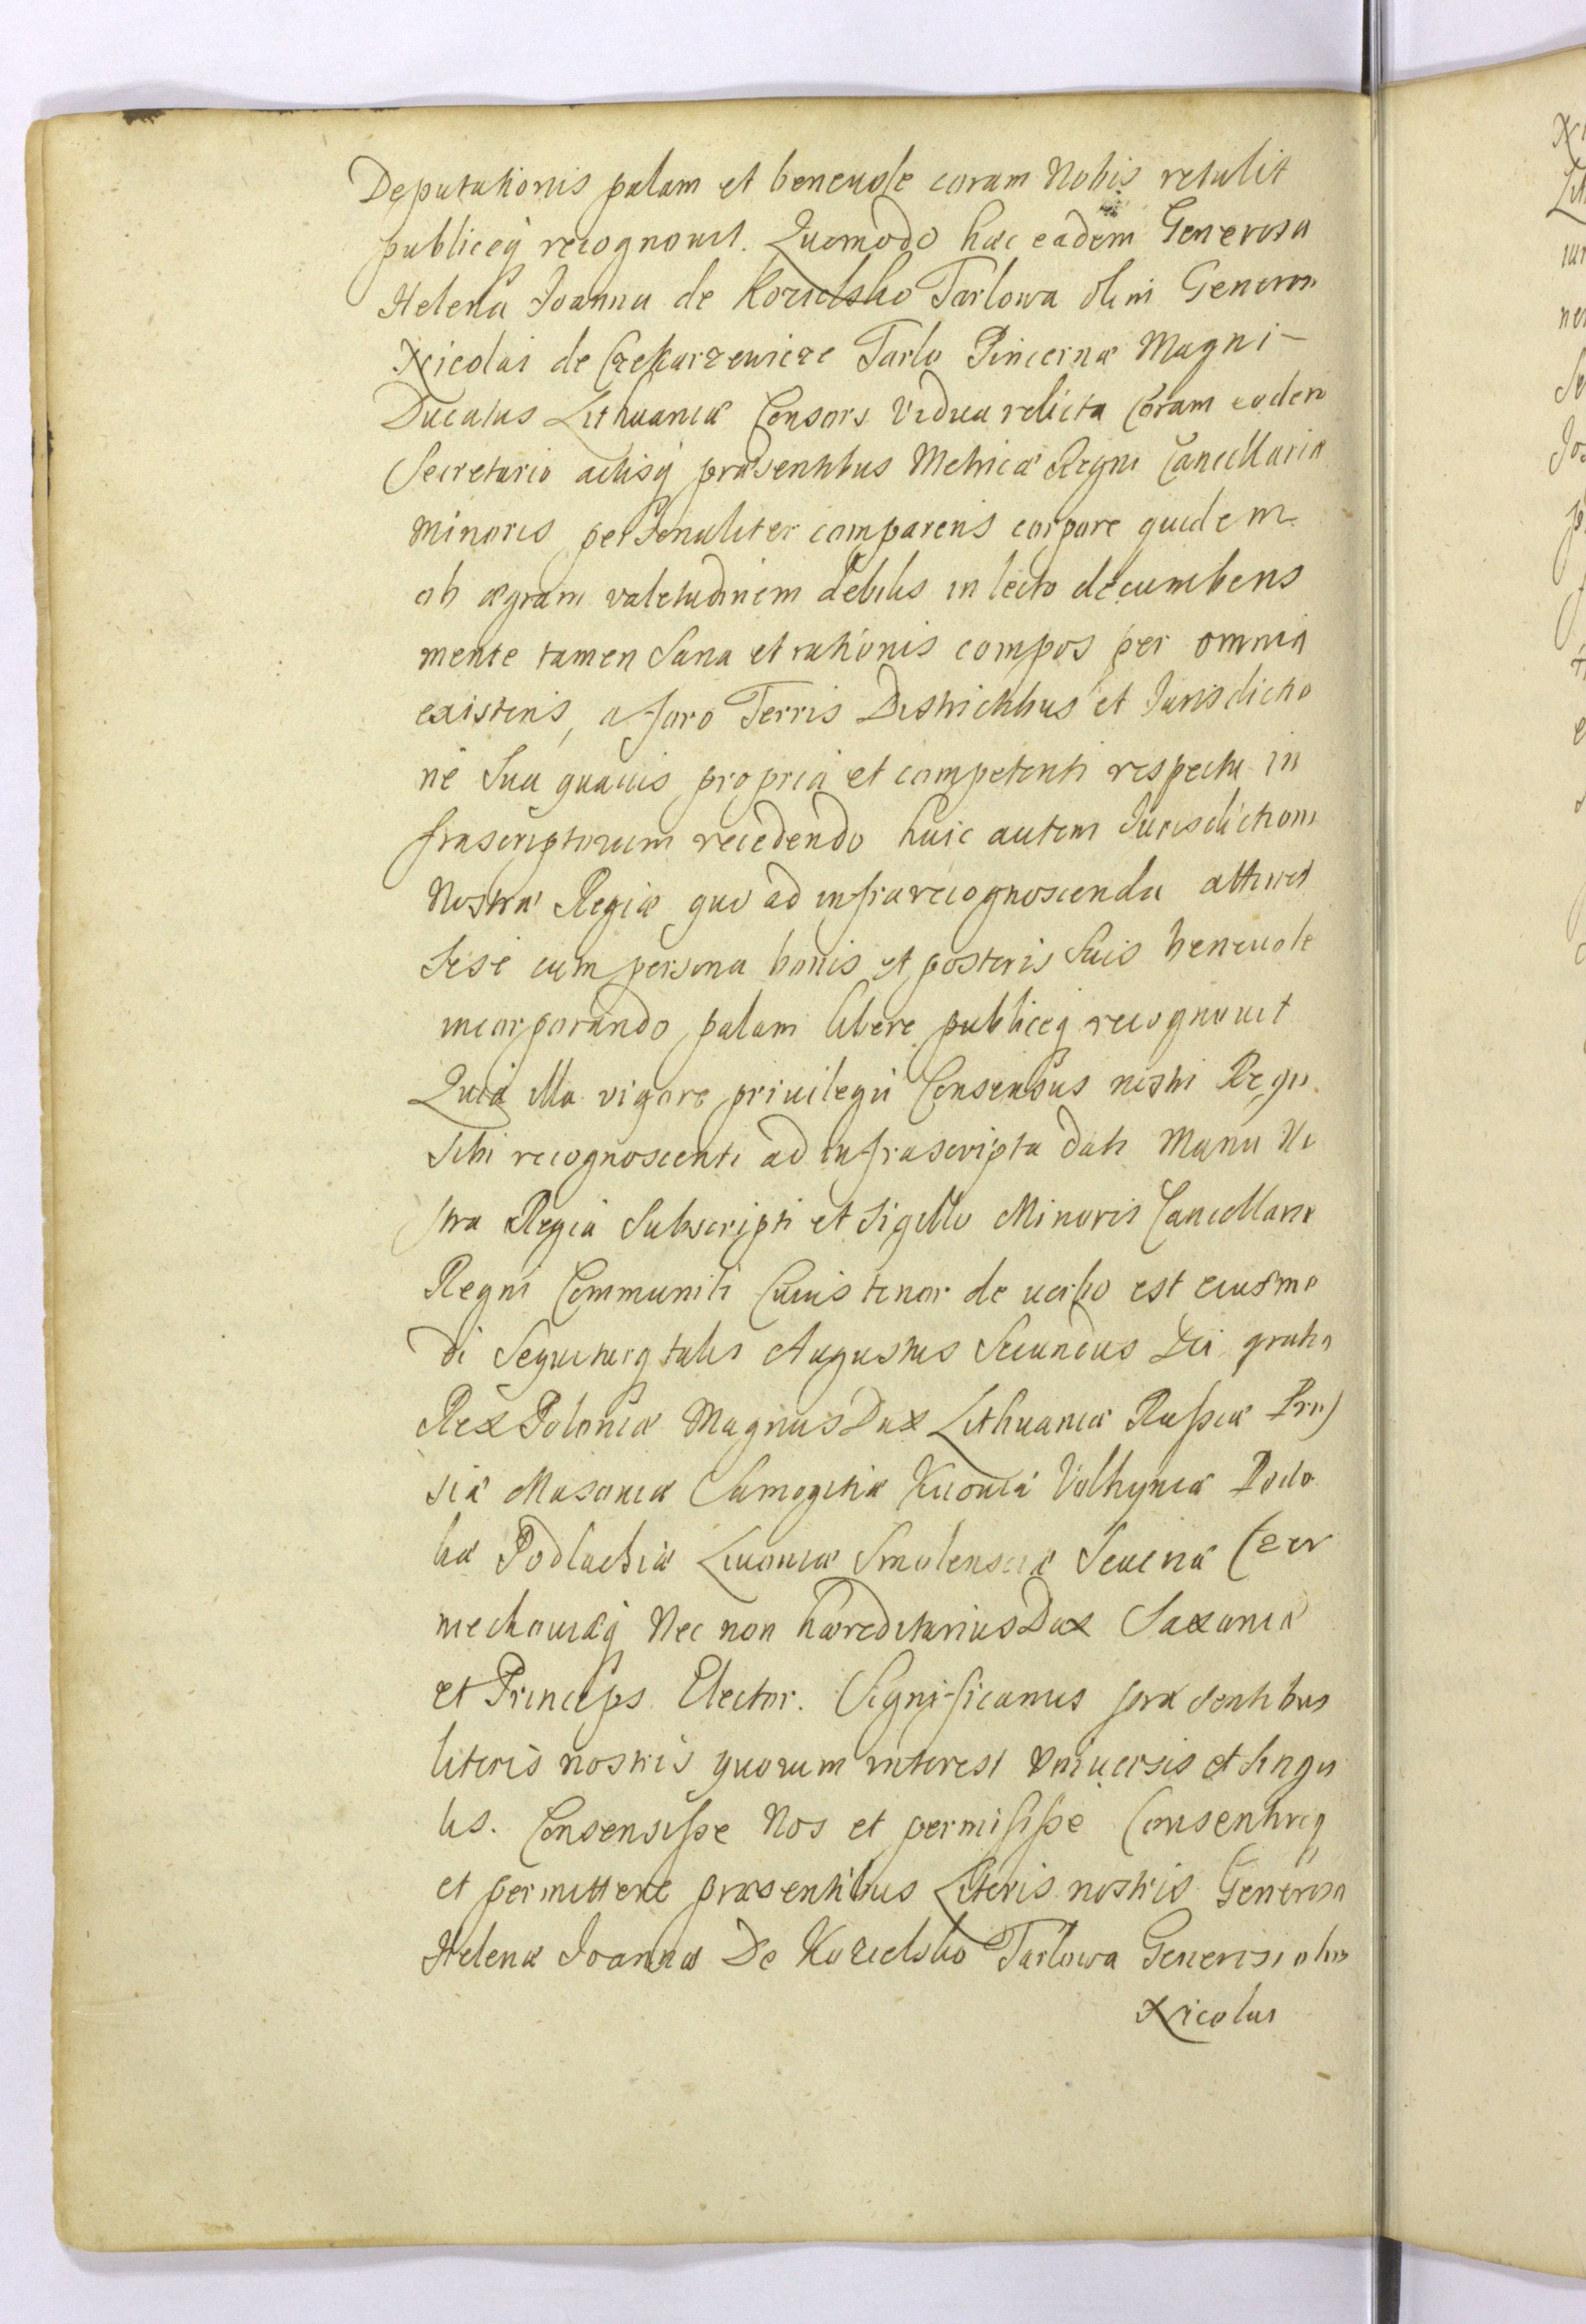 Deputationis palam et beneuole coram Nobis retulit
publiceq recognouit. Quomodo hæc eadem Generosa
Helena Joanna de Kozielsko Tarlowa olim Generosi
Nicolai de Czekarzewicze Tarlo Pincernæ Magni -
Ducatus Lithuaniæ Consors Vidua relicta Coram eodem
Secretario actisq præsentibus Metricæ Regni Cancellariæ
Minoris personaliter comparens corpore quidem
ob ægram valetudinem debilis in lecto decumbens
mente tamen Sana et rationis compos per omnia
existens, a foro Terris Districtibus et Jurisdictio
ne Sua quauis propria et competenti respectu in
frascriptorum recedendo huic autem Jurisdictioni
Nostræ Regiæ quo ad infrarecognoscenda attinet
Sese cum persona bonis et posteris Suis beneuole
incorporando palam libere publiceq recognouit
Quia illa vigore priuilegii Consensus nostri Regii
Sibi recognoscenti ad infrascripta dati Manu No
stra Regia Subscripti et Sigillo Minoris Cancellariæ
Regni Communiti Cuius tenor de uerbo est eiusmo
di Sequiturq talis Augustus Secundus Dei gratia
Rex Poloniæ Magnus Dux Lithuaniæ Russiæ Prus
siæ Masouiæ Samogitiæ Kiiouiæ Volhyniæ Podo
liæ Podlachiæ Liuoniæ Smolensciæ Seueriæ Czer
niechouiæq Nec non hæreditarius Dux Saxoniæ
et Princeps Elector. Significamus præsentibus
literis nostris quorum interest Vniuersis et singu
lis. Consensisse Nos et permisisse Consentireq
et permittere præsentibus Literis nostris Generosæ
Helenæ Joannæ De Kozielsko Tarlowa Generosi olim
Nicolai